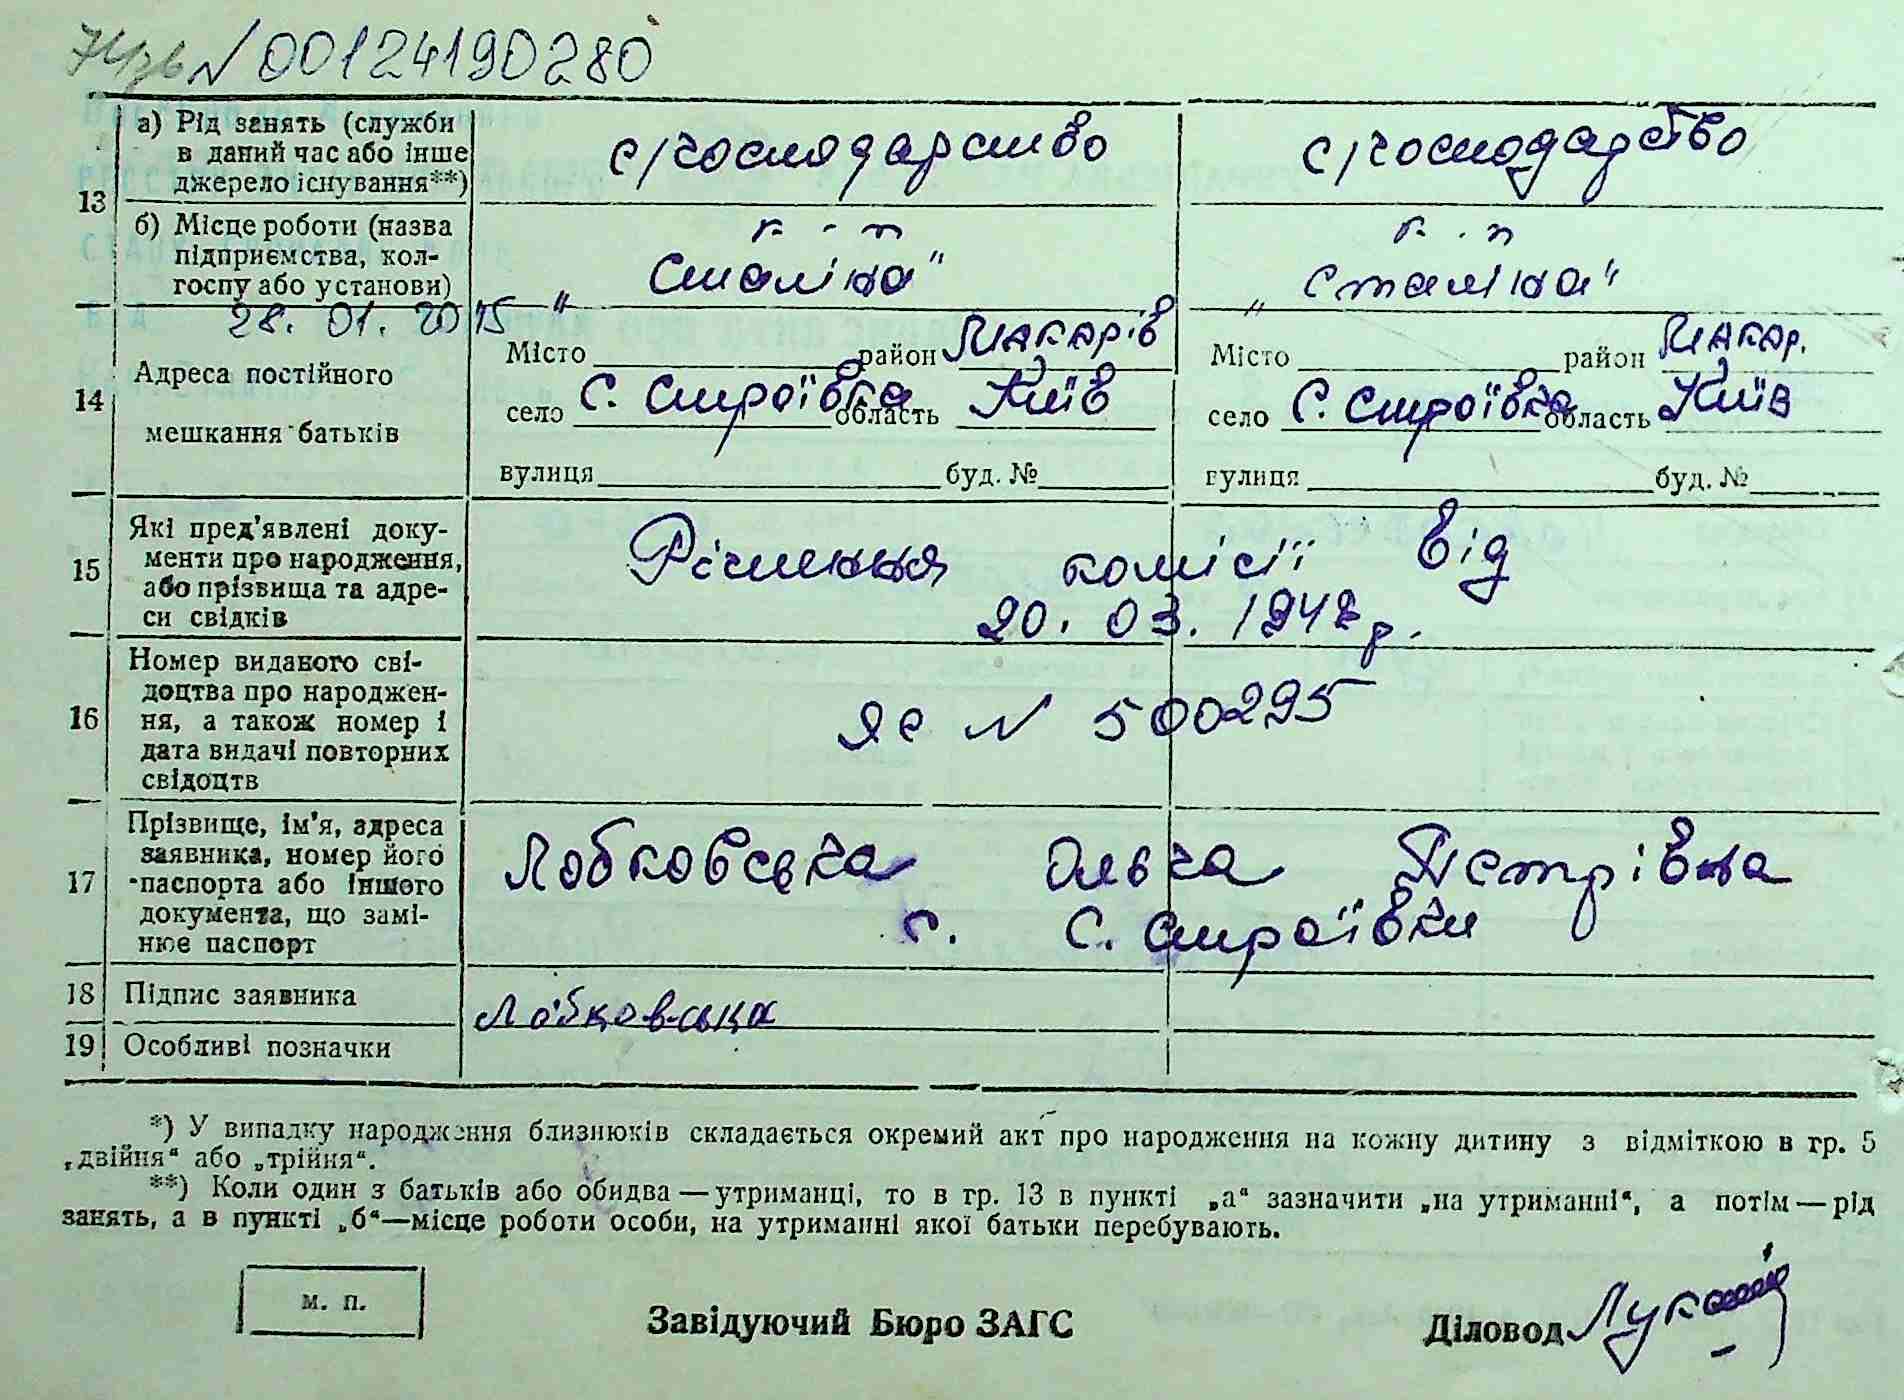 № 00124190280
13
а) Рід занять (служби
в даний час або інше
джерело існування**)
с/господарство
с/господарство
б) Місце роботи (назва
підприємства, кол-
госпу або установи)
к - п
„Сталіна“
к . п
„Сталіна“
28. 01. 2015
14
Адреса постійного
мешкання батьків
Місто район Макарів
село С. Строївка область Київ
вулиця буд. №
Місто район Макар.
село С. Строївка область Київ
вулиця буд. №
15
Які пред'явлені доку-
менти про народження,
або прізвища та адре-
си свідків
Рішення комісії від
20. 03. 1948 р.
16
Номер виданого сві-
доцтва про народжен-
ня, а також номер і
дата видачі повторних
свідоцтв
ЯЄ № 500295
17
Прізвище, ім'я, адреса
заявника, номер його
паспорта або іншого
документа, що замі-
нює паспорт
Лобковська Ольга Петрівна
с. С. Строївки
18
Підпис заявника
Лобковська
19
Особливі позначки
*) У випадку народження близнюків складається окремий акт про народження на кожну дитину з відміткою в гр. 5
„двійня“ або „трійня“.
**) Коли один з батьків або обидва — утриманці, то в гр. 13 в пункті „а“ зазначити „на утриманні“, а потім — рід
занять, а в пункті „б“—місце роботи особи, на утриманні якої батьки перебувають.
м. п.
Завідуючий Бюро ЗАГС
Діловод